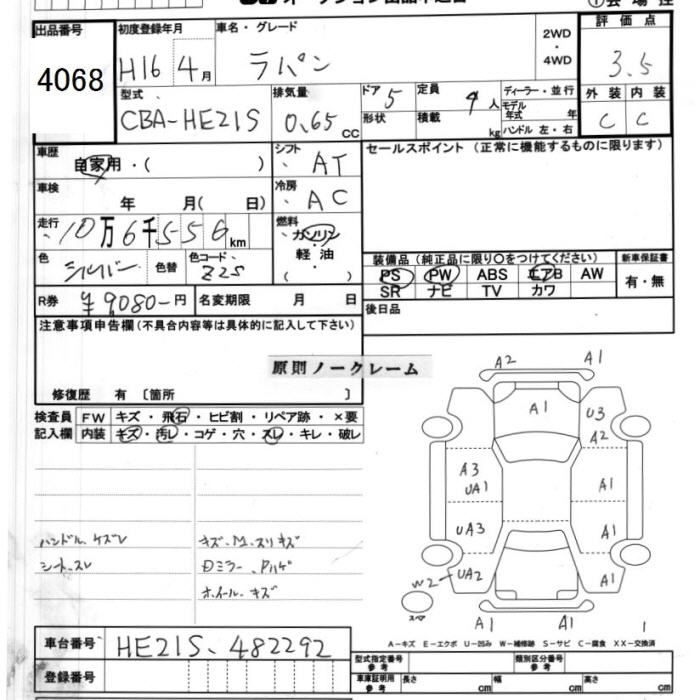 出品番号
4068
初度登録年月
H16 4月
車名・グレード
ラパン
2WD
・
4WD
評価点
3.5
外装 内装
C C
型式
CBA-HE21S
排気量
0.65 cc
ドア 5
形状
定員 4人
積載 kg
ディーラー・並行
モデル年式 年
ハンドル 左・右
車歴
自家用・( )
シフト
AT
セールスポイント(正常に機能するものに限ります)
車検
年 月( 日)
冷房
AC
走行
10万6千556km
燃料
ガソリン
・
軽油
( )
色
シルバー
色替
色コード
Z2S
装備品(純正品に限り○をつけてください)
新車保証書
PS PW ABS エアB AW
SR ナビ TV カワ
有・無
R券 ¥9080-円
名変期限 月 日
後日品
注意事項申告欄(不具合内容等は具体的に記入して下さい)
原則ノークレーム
修復歴 有〔箇所 〕
検査員
記入欄
FW キズ・飛石・ヒビ割・リペア跡・×要
内装 キズ・汚レ・コゲ・穴・スレ・キレ・破レ
ハンドル、ケズレ
シート、スレ
キズ、M、スリキズ
ホイール、キズ
A2 A1
A1 U3
A2
A3
UA1
A1
UA3 A1
W2 UA2 A1
スペア
A1 A1 1
A-キズ E-エクボ U-凹み W-補修跡 S-サビ C-腐食 XX-交換済
車台番号 HE21S-482292
登録番号
型式指定番号
参考
類別区分番号
参考
車庫証明用
参考
長さ cm 幅 cm 高さ cm